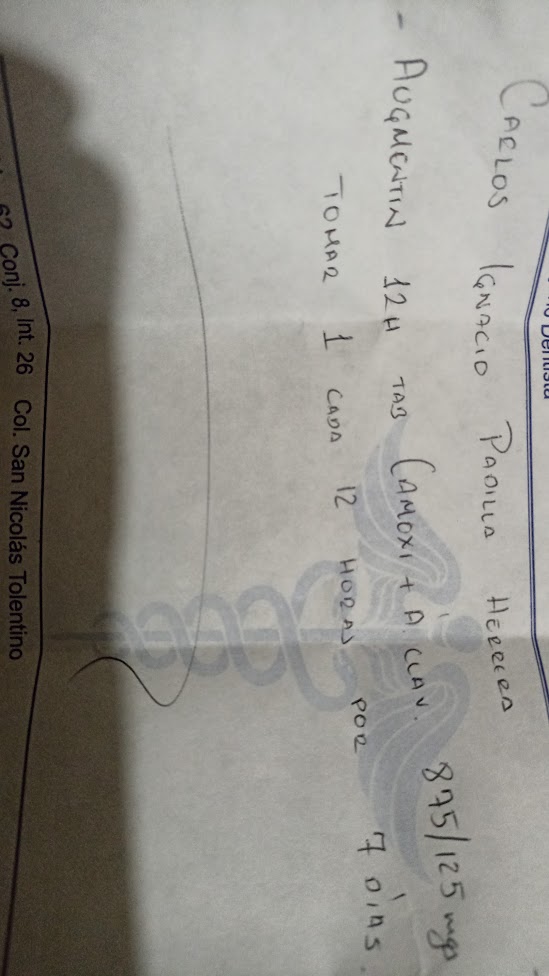 Dentista
CARLOS IGNACIO PADILLA HERRERA
- AUGMENTIN 12H TAB (AMOXI + A. CLAV. 875/125 mgs
TOMAR 1 CADA 12 HORAS POR 7 DÍAS.
62 Conj. 8, Int. 26 Col. San Nicolás Tolentino